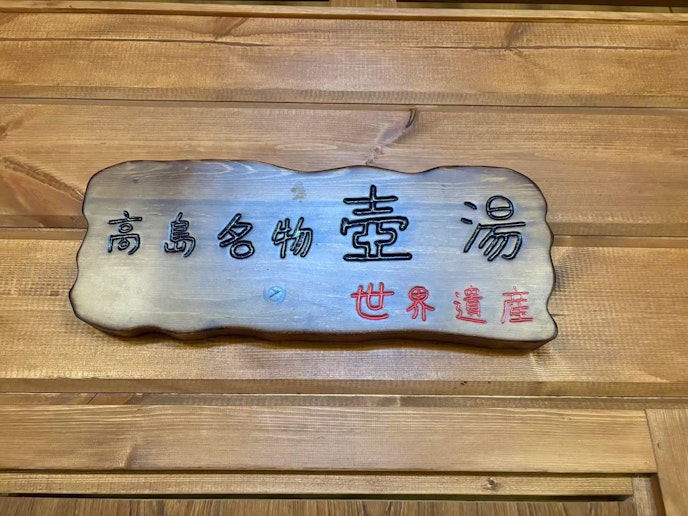 高島名物 壺湯
世界遺産